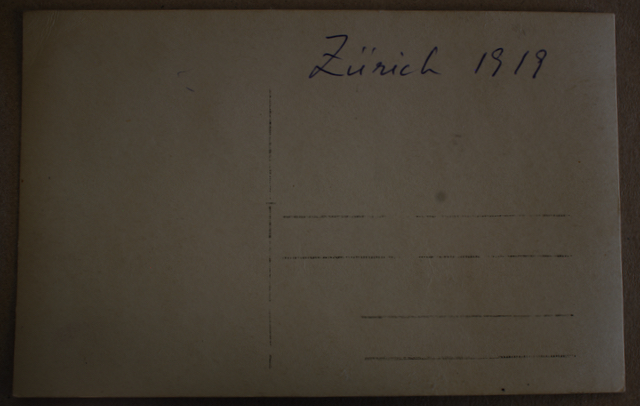 Zürich 1919